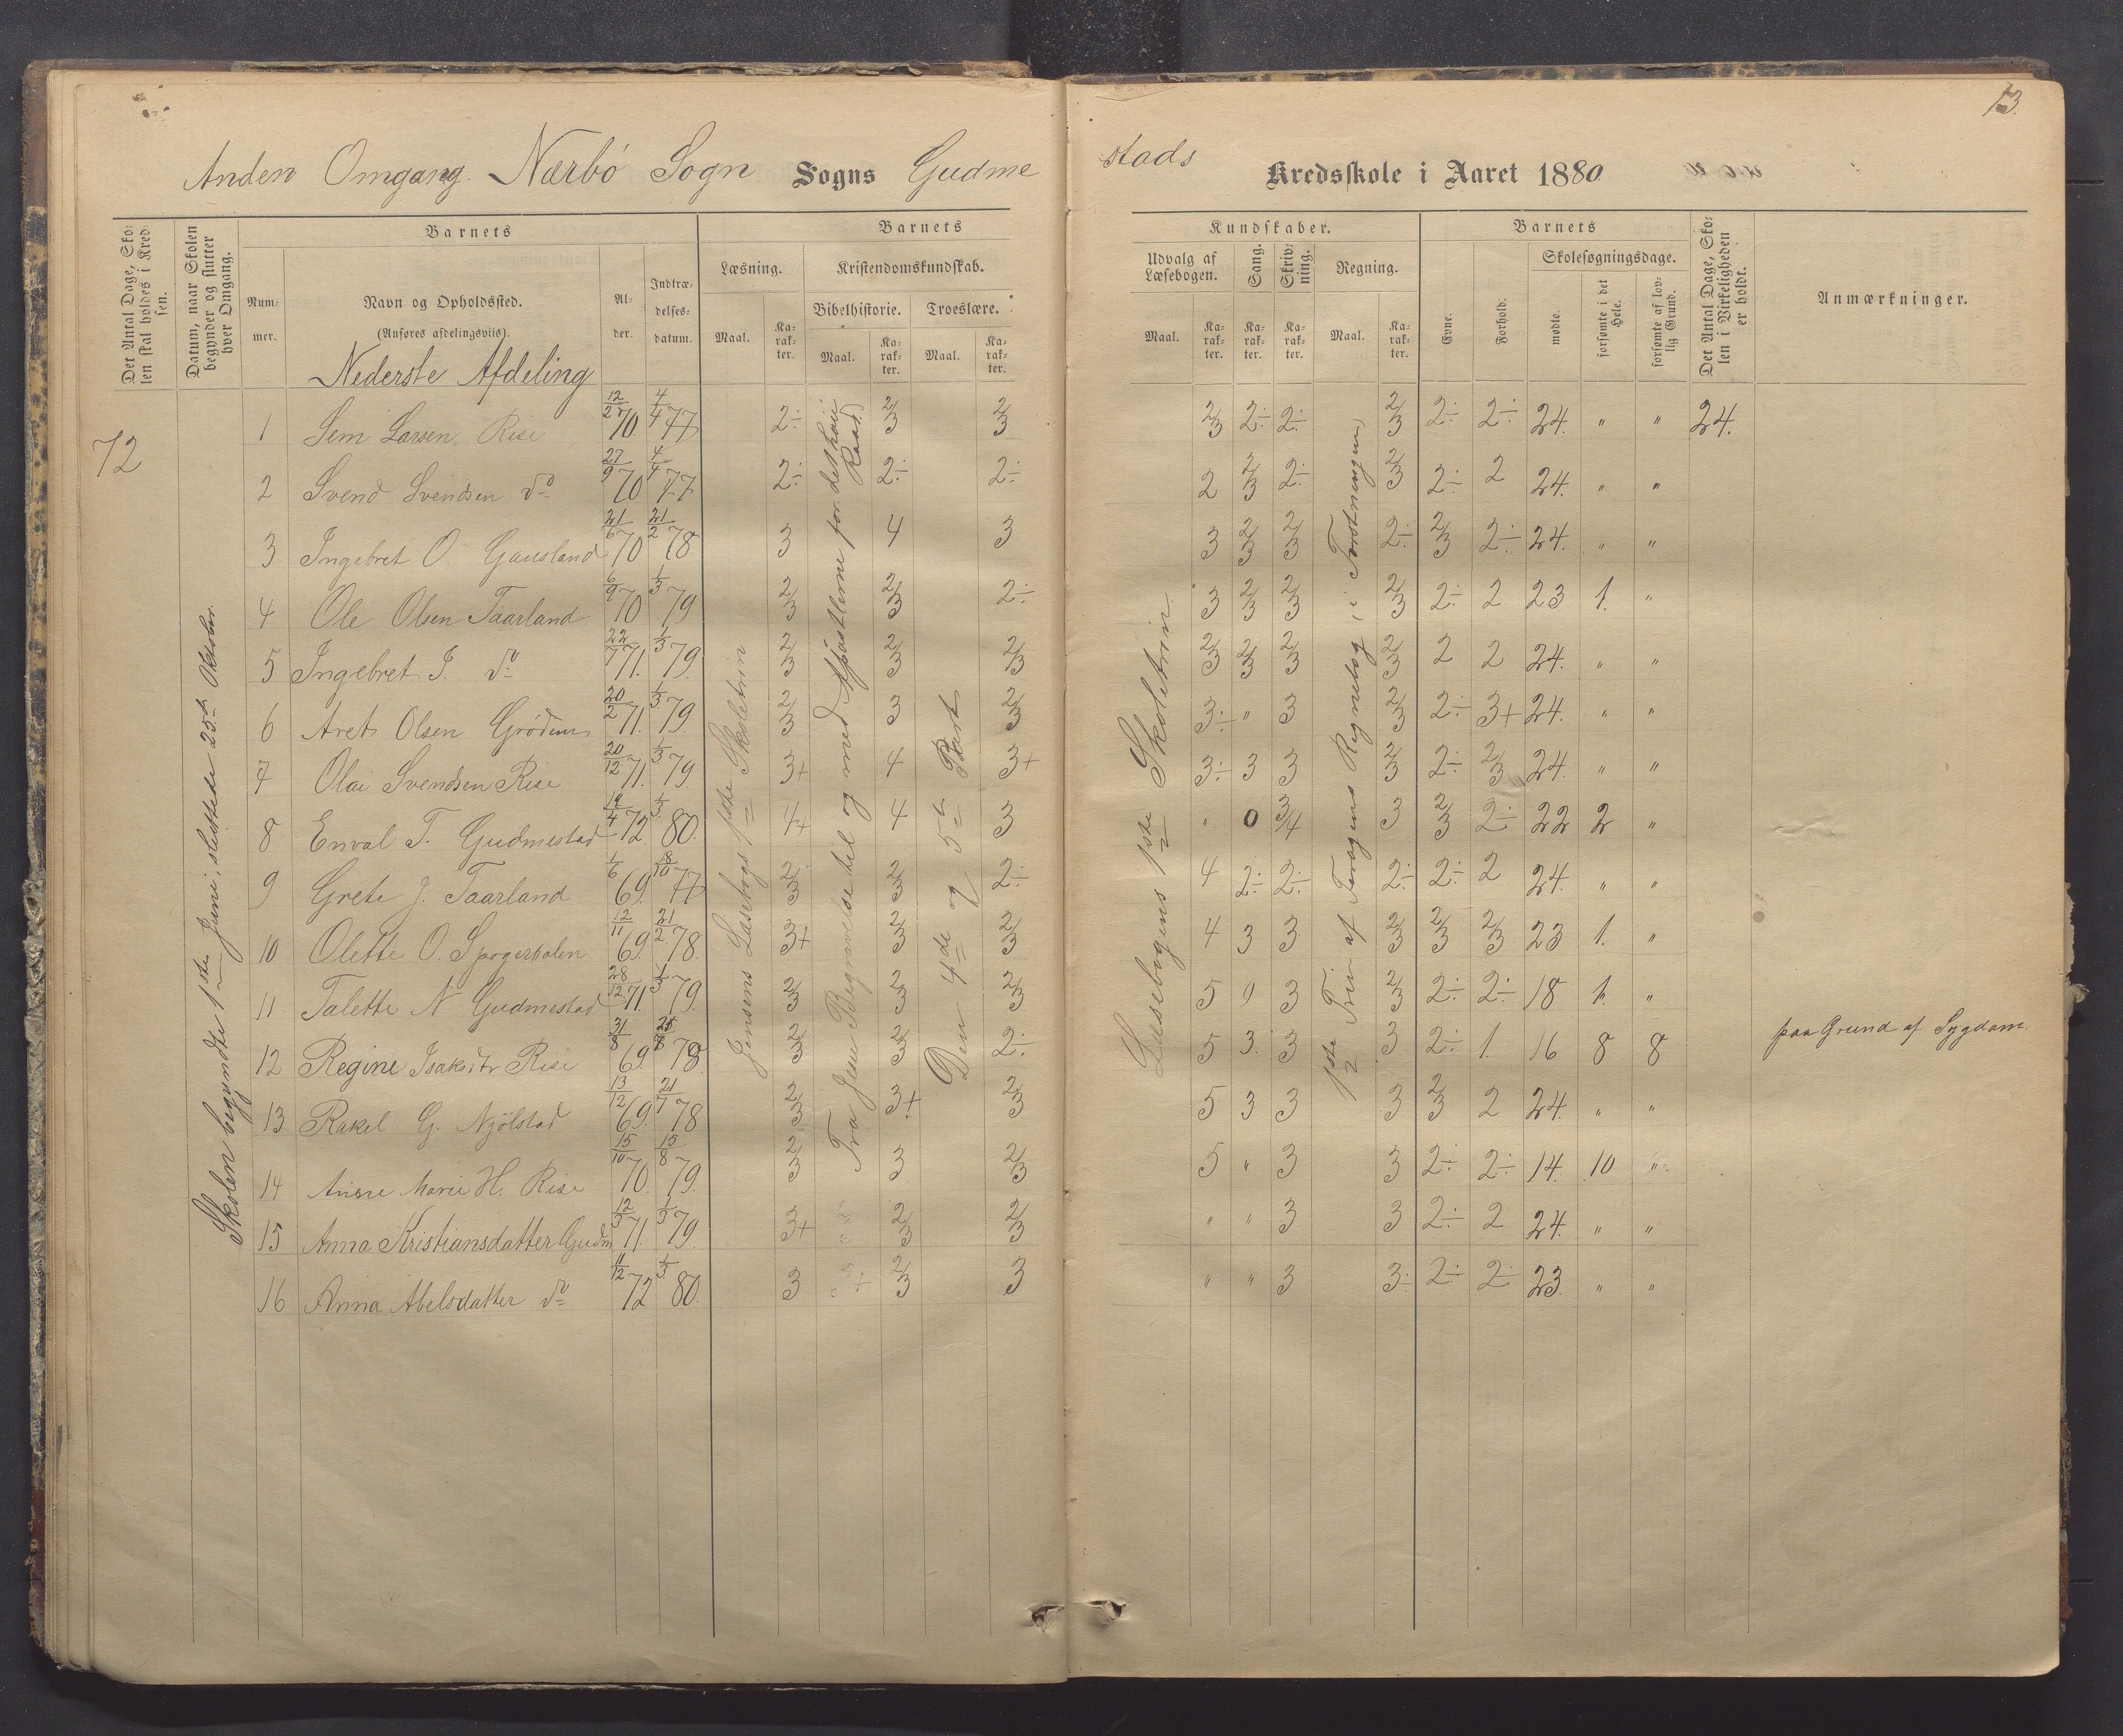 13.
Anden Omgang. Nærbö Sogn Sogns Gudme
stads Kredsskole i Aaret 1880.
Det Antal Dage, Sko-
len skal holdes i Kred-
sen.
Datum, naar Skolen
begynder og slutter
hver Omgang.
Barnets
Num-
mer.
Navn og Opholdssted.
(Anføres afdelingsviis).
Nederste Afdeling
Al-
der.
Indtræ-
delses-
datum.
Barnets
Læsning.
Kristendomskundskab.
Bibelhistorie. Troeslære.
Maal. Ka-
rak-
ter. Maal. Ka-
rak-
ter. Maal. Ka-
rak-
ter.
Kundskaber.
Udvalg af
Læsebogen. Sang. Skriv-
ning. Regning.
Maal. Ka-
rak-
ter. Ka-
rak-
ter. Ka-
rak-
ter. Maal. Ka-
rak-
ter.
Barnets
Evne. Forhold.
Skolesøgningsdage.
mødte.
forsømte i det
Hele.
forsømte af lov-
lig Grund.
Det Antal Dage, Sko-
len i Virkeligheden
er holdt.
Anmærkninger.
72
Skolen begyndte 1ste Juni, sluttede 25de Oktober.
Jensens Læsebogs 1ste Skoletrin
Fra Jesu Begravelse til og med Apostlerne for det høie Raad
Den 4de og 5te Part
Læsebogens 1ste Skoletrin.
1ste Trin af Regnebog, i
1 Sem Larsen Rise 12/2 70. 4/4 77 2÷ 2/3 2/3 2/3 2÷ 2÷ 2/3 2÷ 2÷ 24. " " 24.
2 Svend Svendsen do 27/9 70 4/4 77 2÷ 2÷ 2÷ 2 2/3 2÷ 2/3 2÷ 2 24. " "
3 Ingebret O. Gausland 21/6 70 21/2 78 3 4 3 3 2/3 2/3 2÷ 2/3 2÷ 24. " "
4 Ole Olsen Taarland 6/9 70 1/3 79 2/3 2/3 2÷ 3 2/3 2/3 2/3 2÷ 2 23 1. "
5 Ingebret J. do 22/7 71. 1/3 79. 2/3 2/3 2/3 2/3 2/3 2/3 2/3 2 2 24. " "
6 Aret Olsen Grödem 20/2 71. 1/3 79. 2/3 3 2/3 3÷ " 3 2/3 2÷ 3+ 24. " "
7 Olai Svendsen Rise 20/12 71. 1/3 79. 3+ 4 3+ 3÷ 3 3 2/3 2÷ 2/3 24. " "
8 Enval T. Gudmestad 19/4 72. 1/3 80. 4+ 4 3 " 0 3/4 3 2/3 2÷ 22 2 "
9 Grete J. Taarland 1/6 69. 18/10 77 2/3 2/3 2÷ 4 2÷ 2÷ 2÷ 2÷ 2 24. " "
10 Olette O. 12/11 69. 21/2 78. 3+ 2/3 2/3 4 3 3 2/3 2/3 2/3 23 1. "
11 Talette N Gudmestad 28/12 71. 1/3 79. 2/3 2/3 2/3 5 0 3 2/3 2÷ 2÷ 18 1. "
12 Regine Isaksdtr Rise 31/8 69. 78. 2/3 2/3 2÷ 5 3. 3 3 2÷ 1. 16 8 8 paa Grund af Sygdom.
13 Rakel G. Njölstad 13/12 69. 21/7 78 2/3 3+ 2/3 5 3 3 3 2/3 2 24. " "
14 Anne Marie H. Rise 15/10 70. 15/8 79. 2/3 3 2/3 5 " 3 3 2÷ 2÷ 14. 10 "
15 Anna Kristiansdatter Gudm 12/3 71 1/3 79 3+ 2/3 2/3 " " 3 3 2÷ 2 24. " "
16 Anna Abelsdatter do 11/12 72 1/3 80. 3 2/3 3 " " 3 3÷ 2÷ 2÷ 23. " "